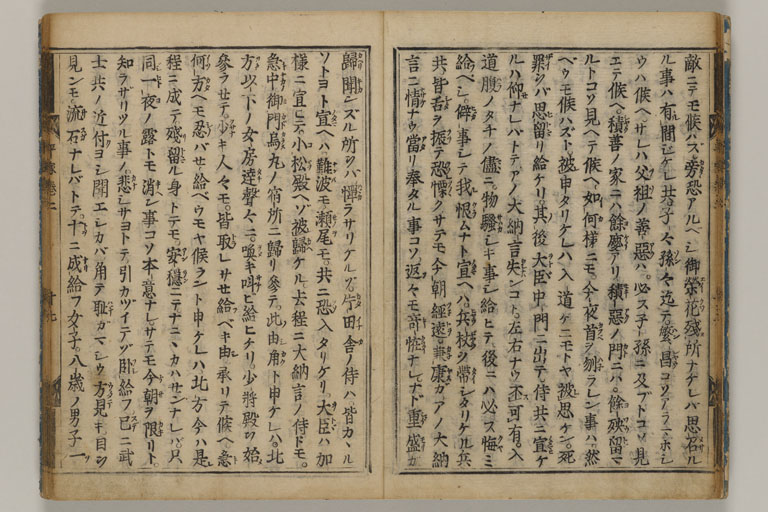 敵ニテモ候ハズ旁恐アルヘシ御榮花殘所ナケレバ思召ル
ル事ハ有間シケレ共子々孫々迄テ繁昌コソアラマホシ
ウハ候ヘサレハ父祖ノ善惡ハ必ス子孫ニ及ブトコソ見
エテ候ヘ積善ノ家ニハ餘慶アリ積惡ノ門ニハ餘殃留マ
ルトコソ見ヘテ候ヘ如何樣ニモ今夜首ヲ刎ラレン事ハ然
ヘウモ候ハズト被申タリケレハ入道ケニモトヤ被思ケン死
罪ヲバ思留リ給ケリ其後大臣中門ニ出テ侍共ニ宣ケ
ルハ仰ナレバトテアノ大納言失ンコト左右ナウ不可有入
道腹ノタチノ儘ニ物騷シキ事シ給ヒテ後ニハ必ス悔ミ
給ベシ僻事シテ我恨ムナト宣ヘハ兵杖ヲ帶シタリケル兵
共皆舌ヲ振テ恐慄クサテモ今朝經遠兼康カアノ大納
言ニ情ナウ當リ奉タル事コソ返々モ奇怪ナレナド重盛カ
歸聞ンズル所ヲバ憚ラサリケルゾ片田舍ノ侍ハ皆カヽル
ソトヨト宣ヘハ難波モ瀬尾モ共ニ恐入タリケリ大臣ハ加
樣ニ宣ヒテ小松殿ヘゾ被歸ケル去程ニ大納言ノ侍ドモ
急中御門烏丸ノ宿所ニ歸リ參テ此由角ト申ケレハ北
方以下ノ女房達聲々ニ喚キ叫ヒ給ヒケリ少將殿ヲ始
參ラセテ少キ人々モ皆取レサセ給ベキ由承リテ候ヘ急
何方ヘモ忍バサセ給ベウモヤ候ラント申ケレハ北方今ハ是
程ニ成テ殘留ル身トテモ安穩ニテナニヽカハサンナレハ只
同一夜ノ露トモ消ン事コソ本意ナレサテモ今朝ヲ限リト
知ラザリツル事ノ悲シサヨトテ引カツイテゾ臥給フ已ニ武
士共ノ近付ヨシ聞エシカバ角テ耻ガマシウ方見キ目ヲ
見ンモ流石ナレバトテ十ニ成給フ女子八歳ノ男子一